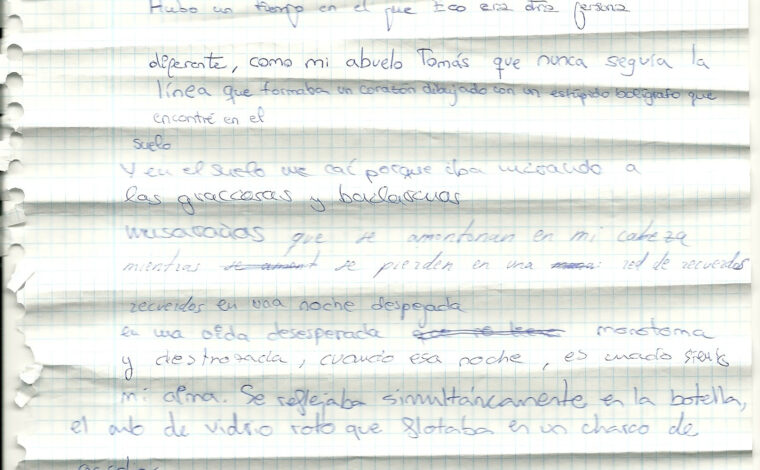 Hubo un tiempo en el que era otra persona
diferente, como mi abuelo Tomás que nunca seguía la
línea que formaba un corazón dibujado con un estúpido bolígrafo que
encontré en el
suelo
Y en el suelo me caí porque iba mirando a
las graciosas y bailarinas
musarañas que se amontonan en mi cabeza
mientras se pierden en una red de recuerdos
recuerdos en una noche despejada
en una vida desesperada monotona
y destrozada, cuando esa noche, es cuando
mi alma. Se reflejaba simultáneamente en la botella,
el de vidrio roto que flotaba en un charco de